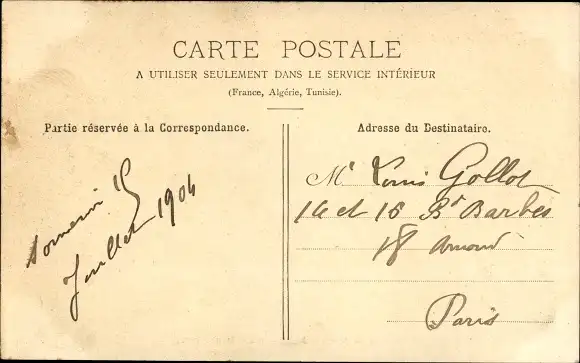 CARTE POSTALE
A UTILISER SEULEMENT DANS LE SERVICE INTÉRIEUR
(France, Algérie, Tunisie).
Partie réservée à la Correspondance.
Souvenir
Juillet 1904
Adresse du Destinataire.
Mr Louis Gollot
14 et 16 Bd Barbes
18 Arrond
Paris